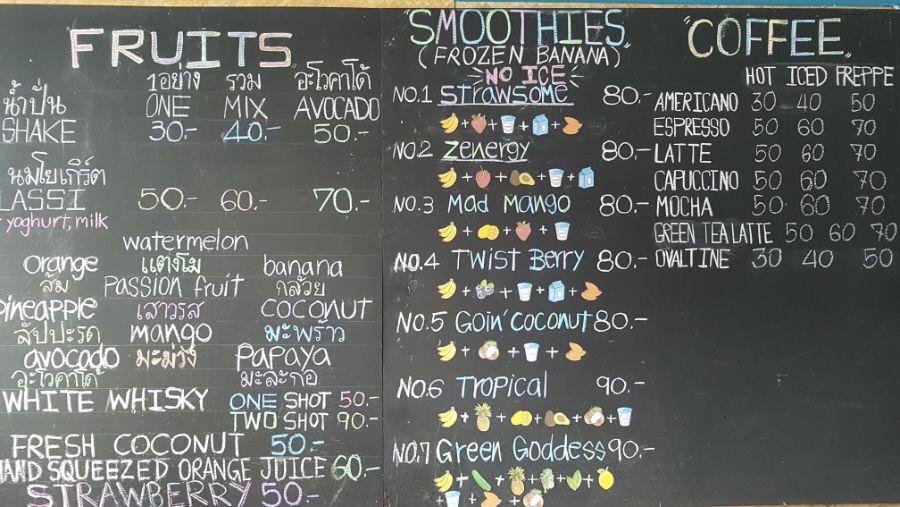 "FRUITS"
1อย่าง รวม อะโวคาโด้
น้ำปั่น ONE MIX AVOCADO
SHAKE 30.- 40.- 50.-
นมโยเกิร์ต
LASSI 50.- 60.- 70.-
yoghurt, milk
watermelon
orange แตงโม banana
ส้ม Passion fruit กล้วย
pineapple เสาวรส COCONUT
สัปปะรด mango มะพร้าว
avocado มะม่วง Papaya
อะโวคาโด้ มะละกอ
WHITE WHISKY ONE SHOT 50.-
TWO SHOT 90.-
FRESH COCONUT 50.-
HAND SQUEEZED ORANGE JUICE 60.-
STRAWBERRY 50.-
"SMOOTHIES"
(FROZEN BANANA)
NO ICE
NO.1 Strawsome 80.-
NO.2 Zenergy 80.-
NO.3 Mad Mango 80.-
NO.4 Twist Berry 80.-
NO.5 Goin' Coconut 80.-
NO.6 Tropical 90.-
NO.7 Green Goddess 90.-
"COFFEE"
HOT ICED FREPPE
AMERICANO 30 40 50
ESPRESSO 50 60 70
LATTE 50 60 70
CAPUCCINO 50 60 70
MOCHA 50 60 70
GREEN TEA LATTE 50 60 70
OVALTINE 30 40 50